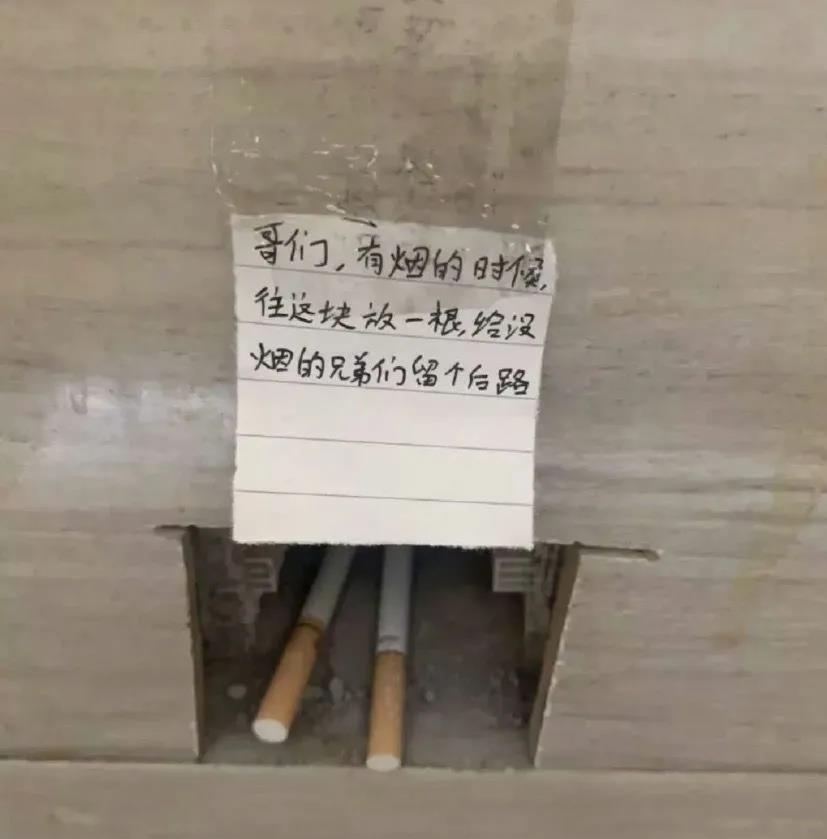 哥们，有烟的时候，
往这块放一根，给没
烟的兄弟们留个后路